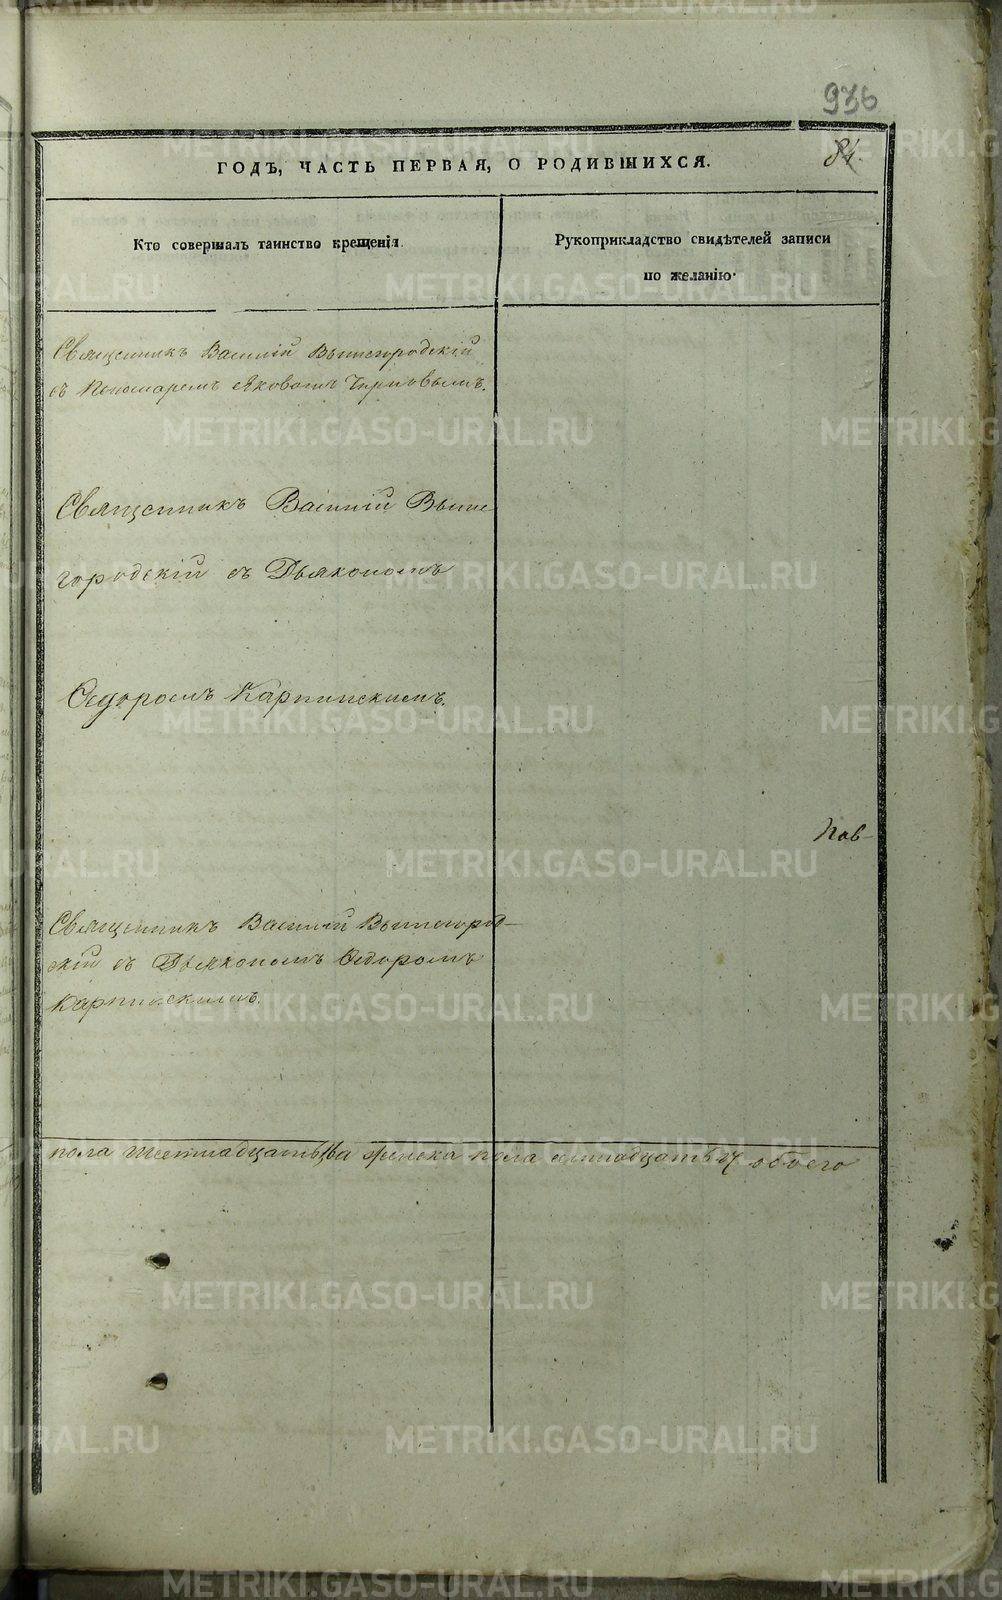 936
84.
ГОДЪ, ЧАСТЬ ПЕРВАЯ, О РОДИВШИХСЯ.
Кто совершалъ таинство крещенія.
Рукоприкладство свидѣтелей записи
по желанію.
Священникъ Василій Вышегородскій
съ Пономаремъ Яковомъ Черновымъ.
Священникъ Василій Выше
городскій съ Дьякономъ
Ѳедоромъ Карпинскимъ.
Пов-
Священникъ Василій Вышегород-
скій съ Дьякономъ Ѳедоромъ
Карпинскимъ.
пола женска пола обоего
METRIKI.GASO-URAL.RU